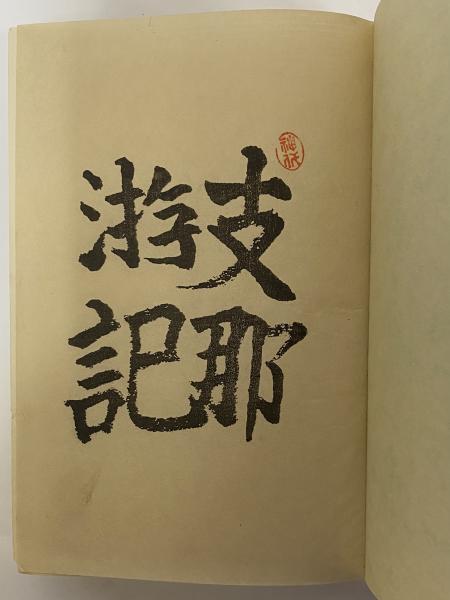 支那
游記